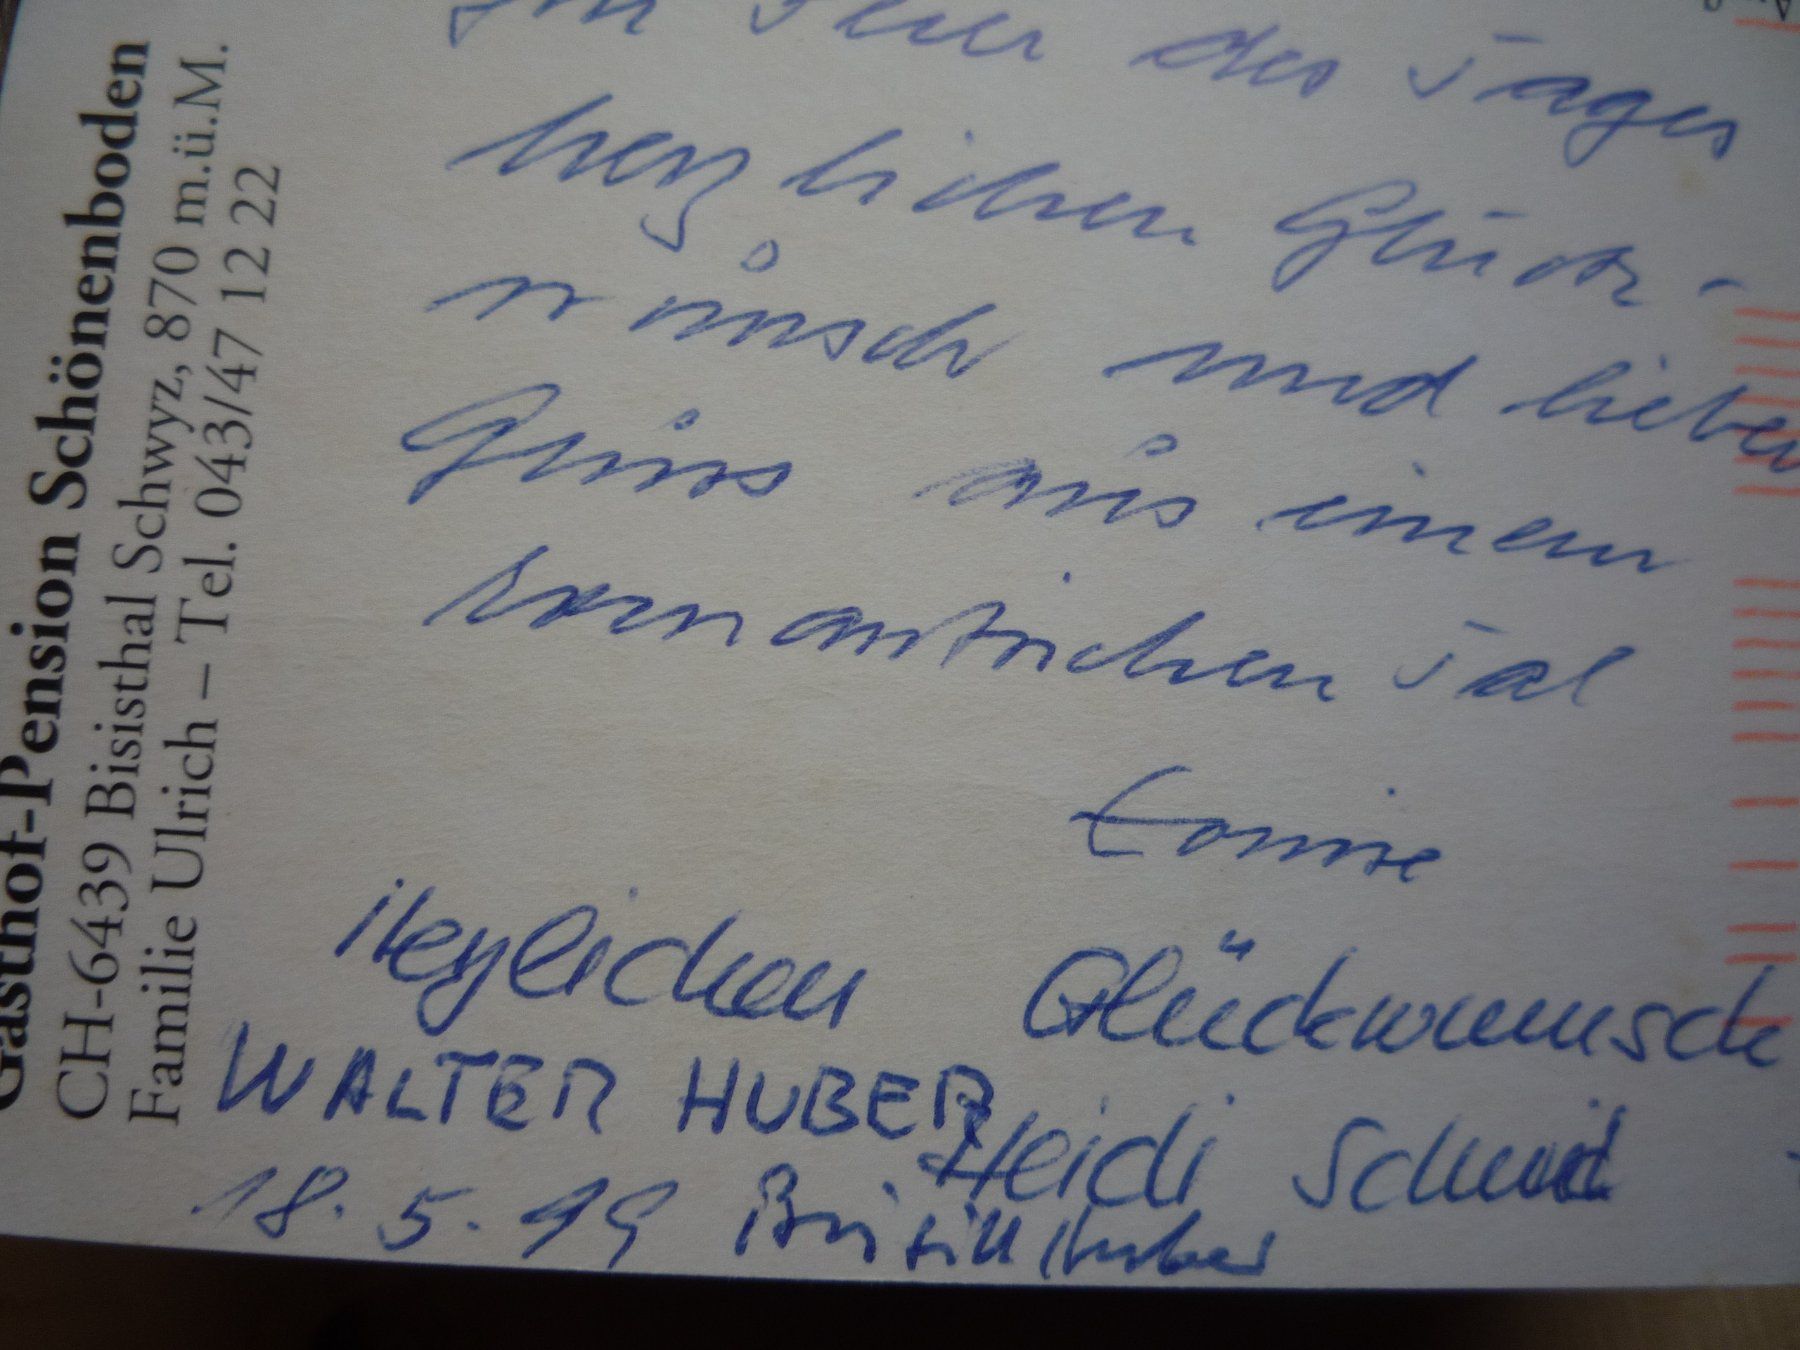 Gasthof-Pension Schönenboden
CH-6439 Bisisthal Schwyz, 870 m.ü.M.
Familie Ulrich – Tel. 043/47 12 22
des Tages
herzlichen Glück-
wünsch und lieben
Grüss aus einem
romantischen Tal
Louise
Herzlichen Glückwunsch
WALTER HUBER
Heidi Schmid
18. 5. 99
Huber